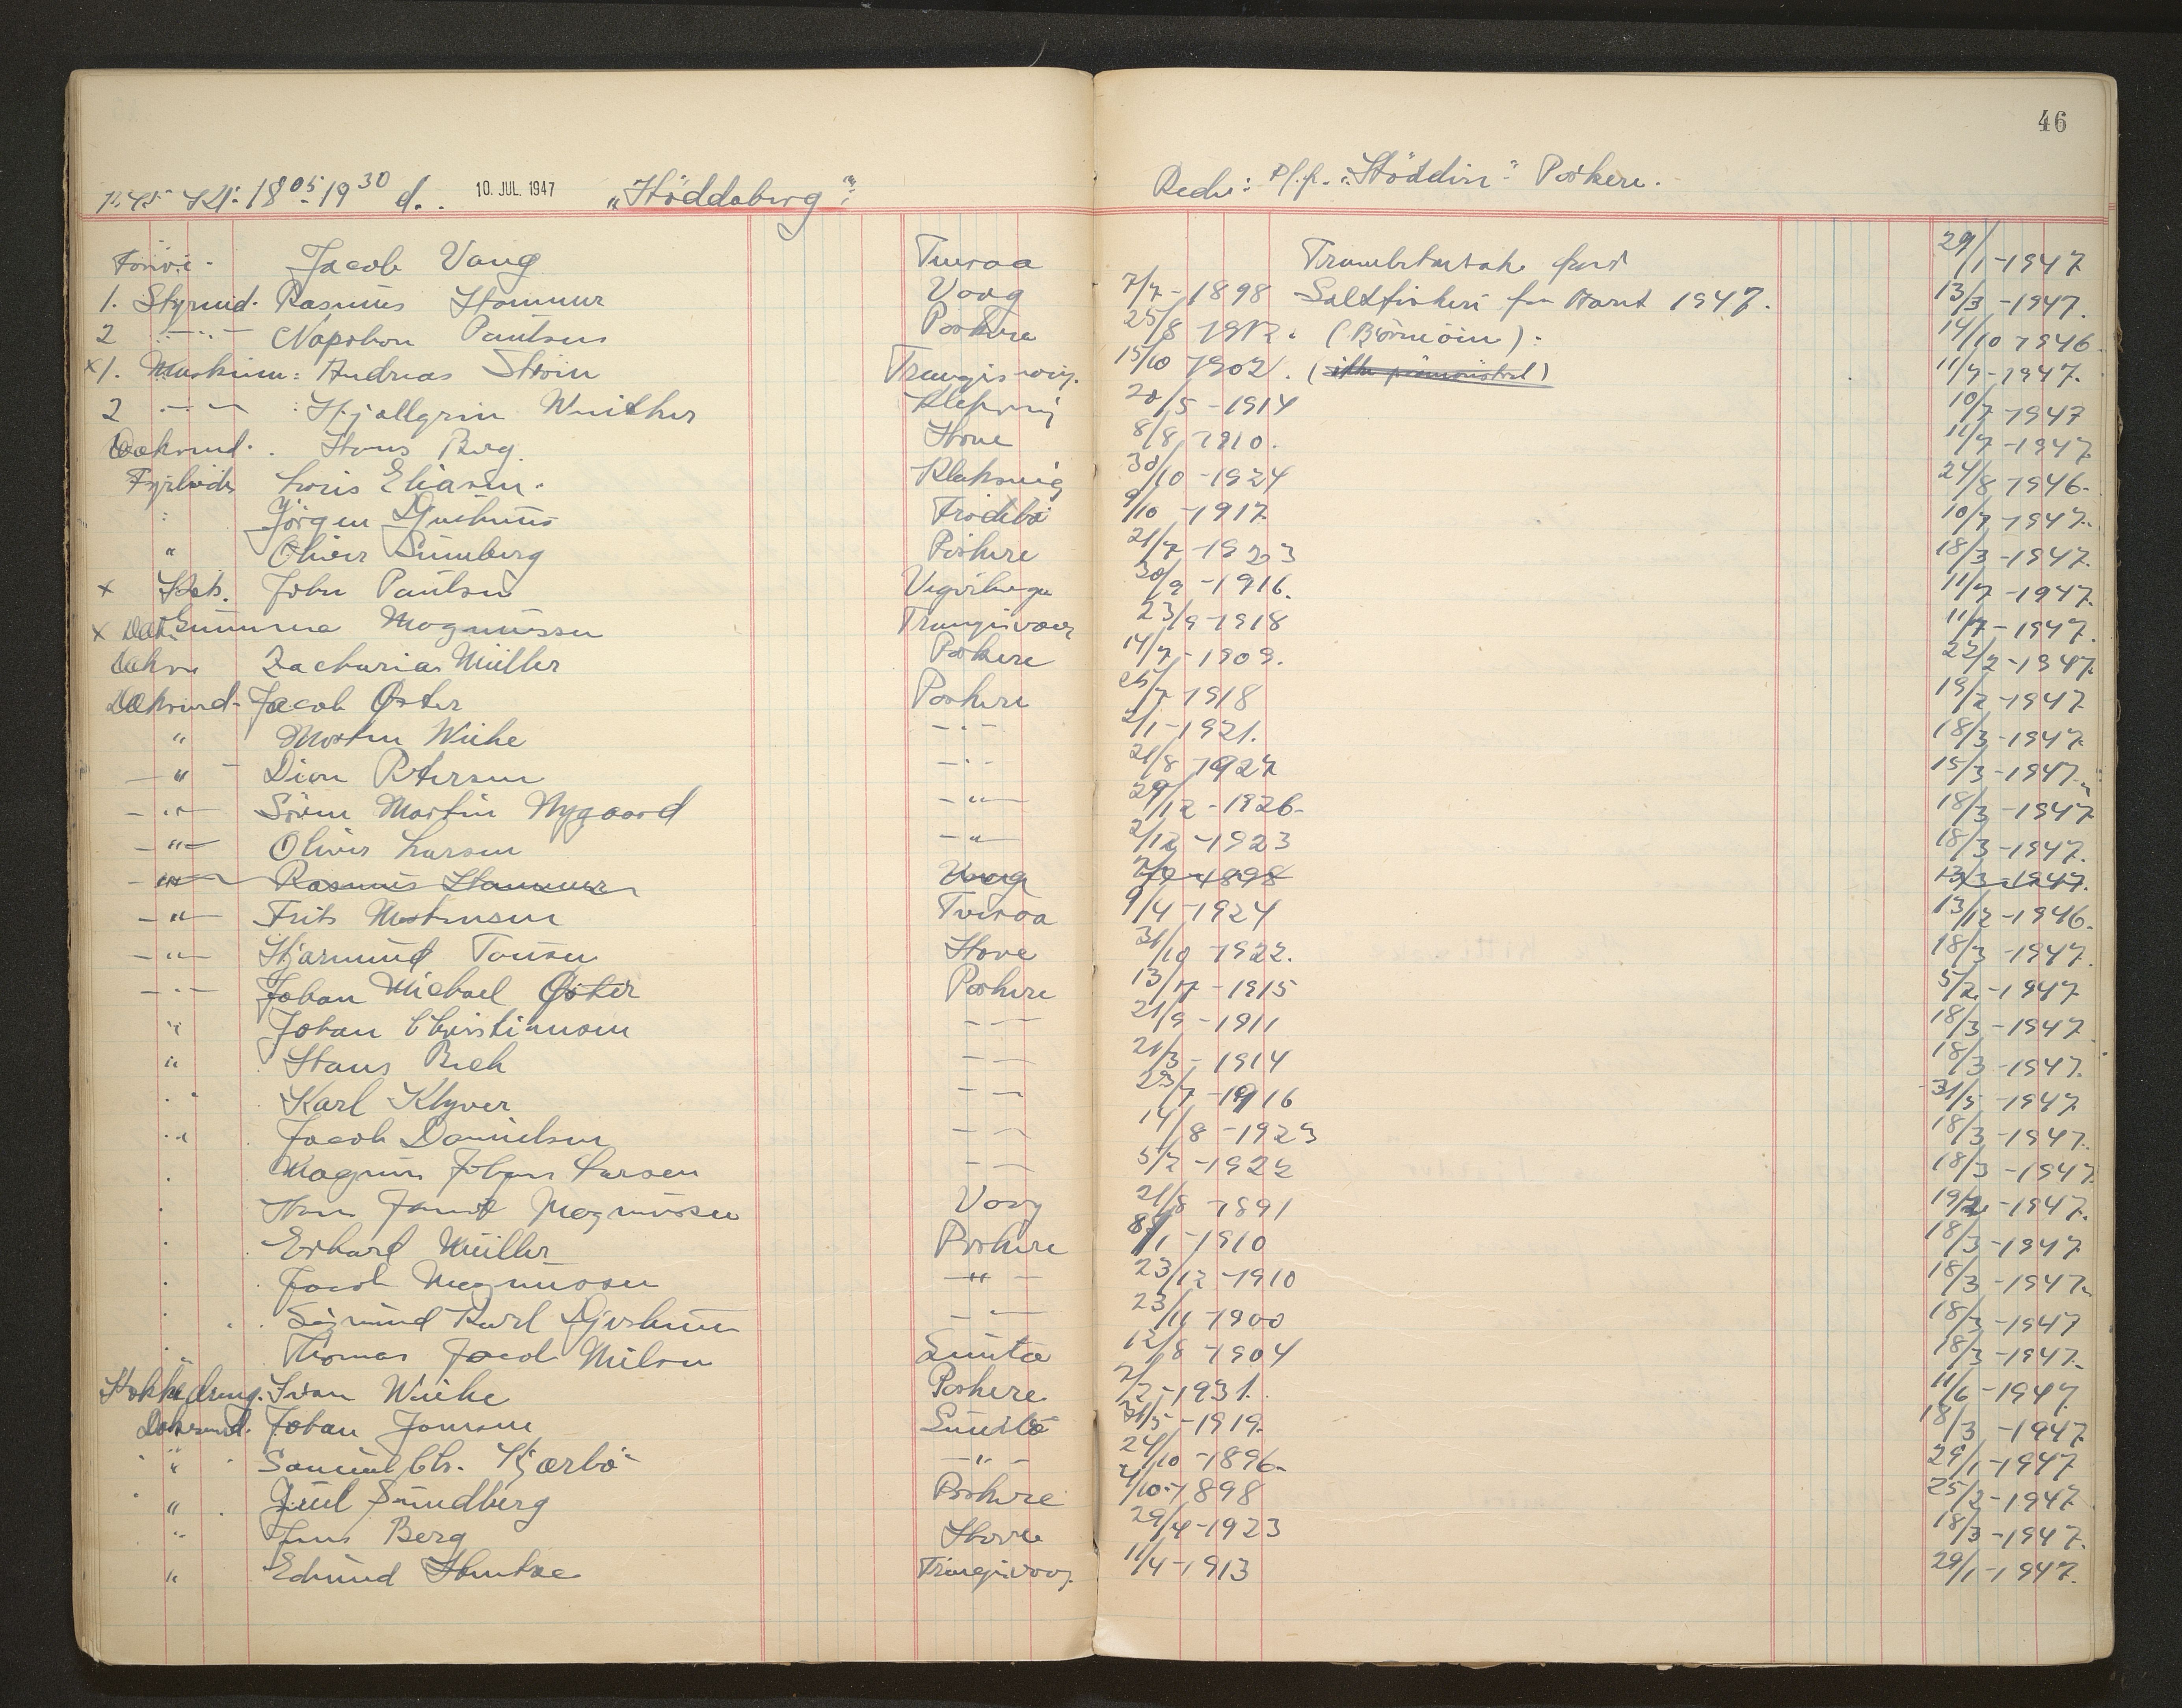 46
Kl. 18 05 - 19 30 d. 10. JUL. 1947 "Höddaberg". Rederi: P/f. "Höddin" Porkere.
Jacob Vang Tveraa 29/1-1947
1. Styrmd. Rasmus Hammer Vaag 7/7-1898 Saltfiskeri fra Marts 1947. 13/3-1947.
2 -"- Napoleon Poulsen Porkere 25/8 (Björnöin). 14/10 1946
x 1. Maskinm: Andreas Trangisvaag. 15/10 1902. 11/7-1947.
2 -"- Hjallgrim Winther 20/5-1914 10/7-1947
Dæksmd. Hans Berg. Hove 8/8 1910. 11/7-1947
Fyrböder Eliasen. Klaksvig 30/10-1924 24/8 1946.
" Jörgen Djurhuus Frodebö 9/10-1917 10/7-1947.
" Oliver Sundberg Porkere 21/7-1923 18/3-1947.
x Kok. John Poulsen 30/9-1916. 11/7-1947.
x Magnussen Trangisvaag 23/9-1918 11/7-1947.
Zacharias Müller Porkere 14/7-1909. 22/2-1947.
Dæksmd. Jacob Öster Porkere 26/7 1918 19/2-1947
" Morten Wiehe -"- 2/1-1921. 18/3-1947.
-"- Petersen -"- 21/8 1924 15/3-1947.
-"- Sören Martin Nygaard -"- 29/12-1926. 18/3-1947
-"- Oliver Larsen -"- 2/12-1923 18/3-1947.
-"- Rasmus Hammer Vaag 7/7-1898 13/3-1947.
-"- Frits Mortensen Tveraa 9/4-1924 13/12-1946.
-"- Hjarmund Hove 31/10-1922. 18/3-1947
-"- Johan Michael Öster Porkere 13/7-1915 5/2-1947
" Johan Christiansen -"- 21/9-1911 18/3-1947
" Hans Bech -"- 21/3-1914 18/3-1947.
" Karl Klyver -"- 23/7-1916 31/5-1947
" Jacob Danielsen -"- 14/8-1923 18/3-1947.
" Magnus Johan Larsen -"- 5/2-1922 18/3-1947
" Magnussen Vaag 21/8-1891 19/2-1947.
" Erhard Müller Porkere 8/1-1910 18/3-1947
" Jacob Magnussen -"- 23/12-1910 18/3-1947
" Sigmund Karl Djurhuus -"- 23/11-1900 18/3-1947
" Thomas Jacob Nielsen 12/8-1904 18/3-1947.
Kokkedreng. Ivan Wiehe Porkere 2/2-1931. 11/6-1947.
Dæksmd. Johan Joensen Sundbö 31/5-1919. 18/3-1947.
" Samuel Chr. Kjærbö -"- 24/10-1896. 29/1-1947
" Juul Sundberg Porkere 4/10-1898 25/2-1947
" Jens Berg Hove 29/4-1923 18/3-1947.
" Edmund Trangisvaag. 11/4-1913 29/1-1947.